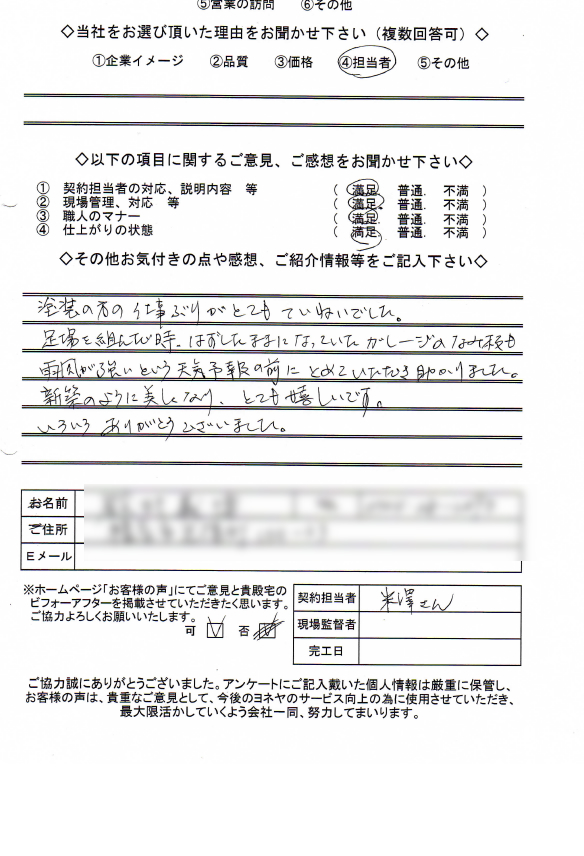 ⑤営業の訪問 ⑥その他
◇当社をお選び頂いた理由をお聞かせ下さい(複数回答可)◇
①企業イメージ ②品質 ③価格 ④担当者 ⑤その他
◇以下の項目に関するご意見、ご感想をお聞かせ下さい◇
① 契約担当者の対応、説明内容 等 ( 満足. 普通. 不満 )
② 現場管理、対応 等 ( 満足. 普通. 不満 )
③ 職人のマナー ( 満足. 普通. 不満 )
④ 仕上がりの状態 ( 満足. 普通. 不満 )
◇その他お気付きの点や感想、ご紹介情報等をご記入下さい◇
塗装の方の仕事ぶりがとてもていねいでした。
足場を組んだ時、はずしたままになっていたガレージのなみ板も
雨風が強いという天気予報の前にとめていただき助かりました。
新築のように美しくなり、とても嬉しいです。
いろいろありがとうございました。
お名前
ご住所
Eメール
※ホームページ「お客様の声」にてご意見と貴殿宅の
ビフォーアフターを掲載させていただきたく思います。
ご協力よろしくお願いいたします。
可 否
契約担当者 米澤さん
現場監督者
完工日
ご協力誠にありがとうございました。アンケートにご記入戴いた個人情報は厳重に保管し、
お客様の声は、貴重なご意見として、今後のヨネヤのサービス向上の為に使用させていただき、
最大限活かしていくよう会社一同、努力してまいります。